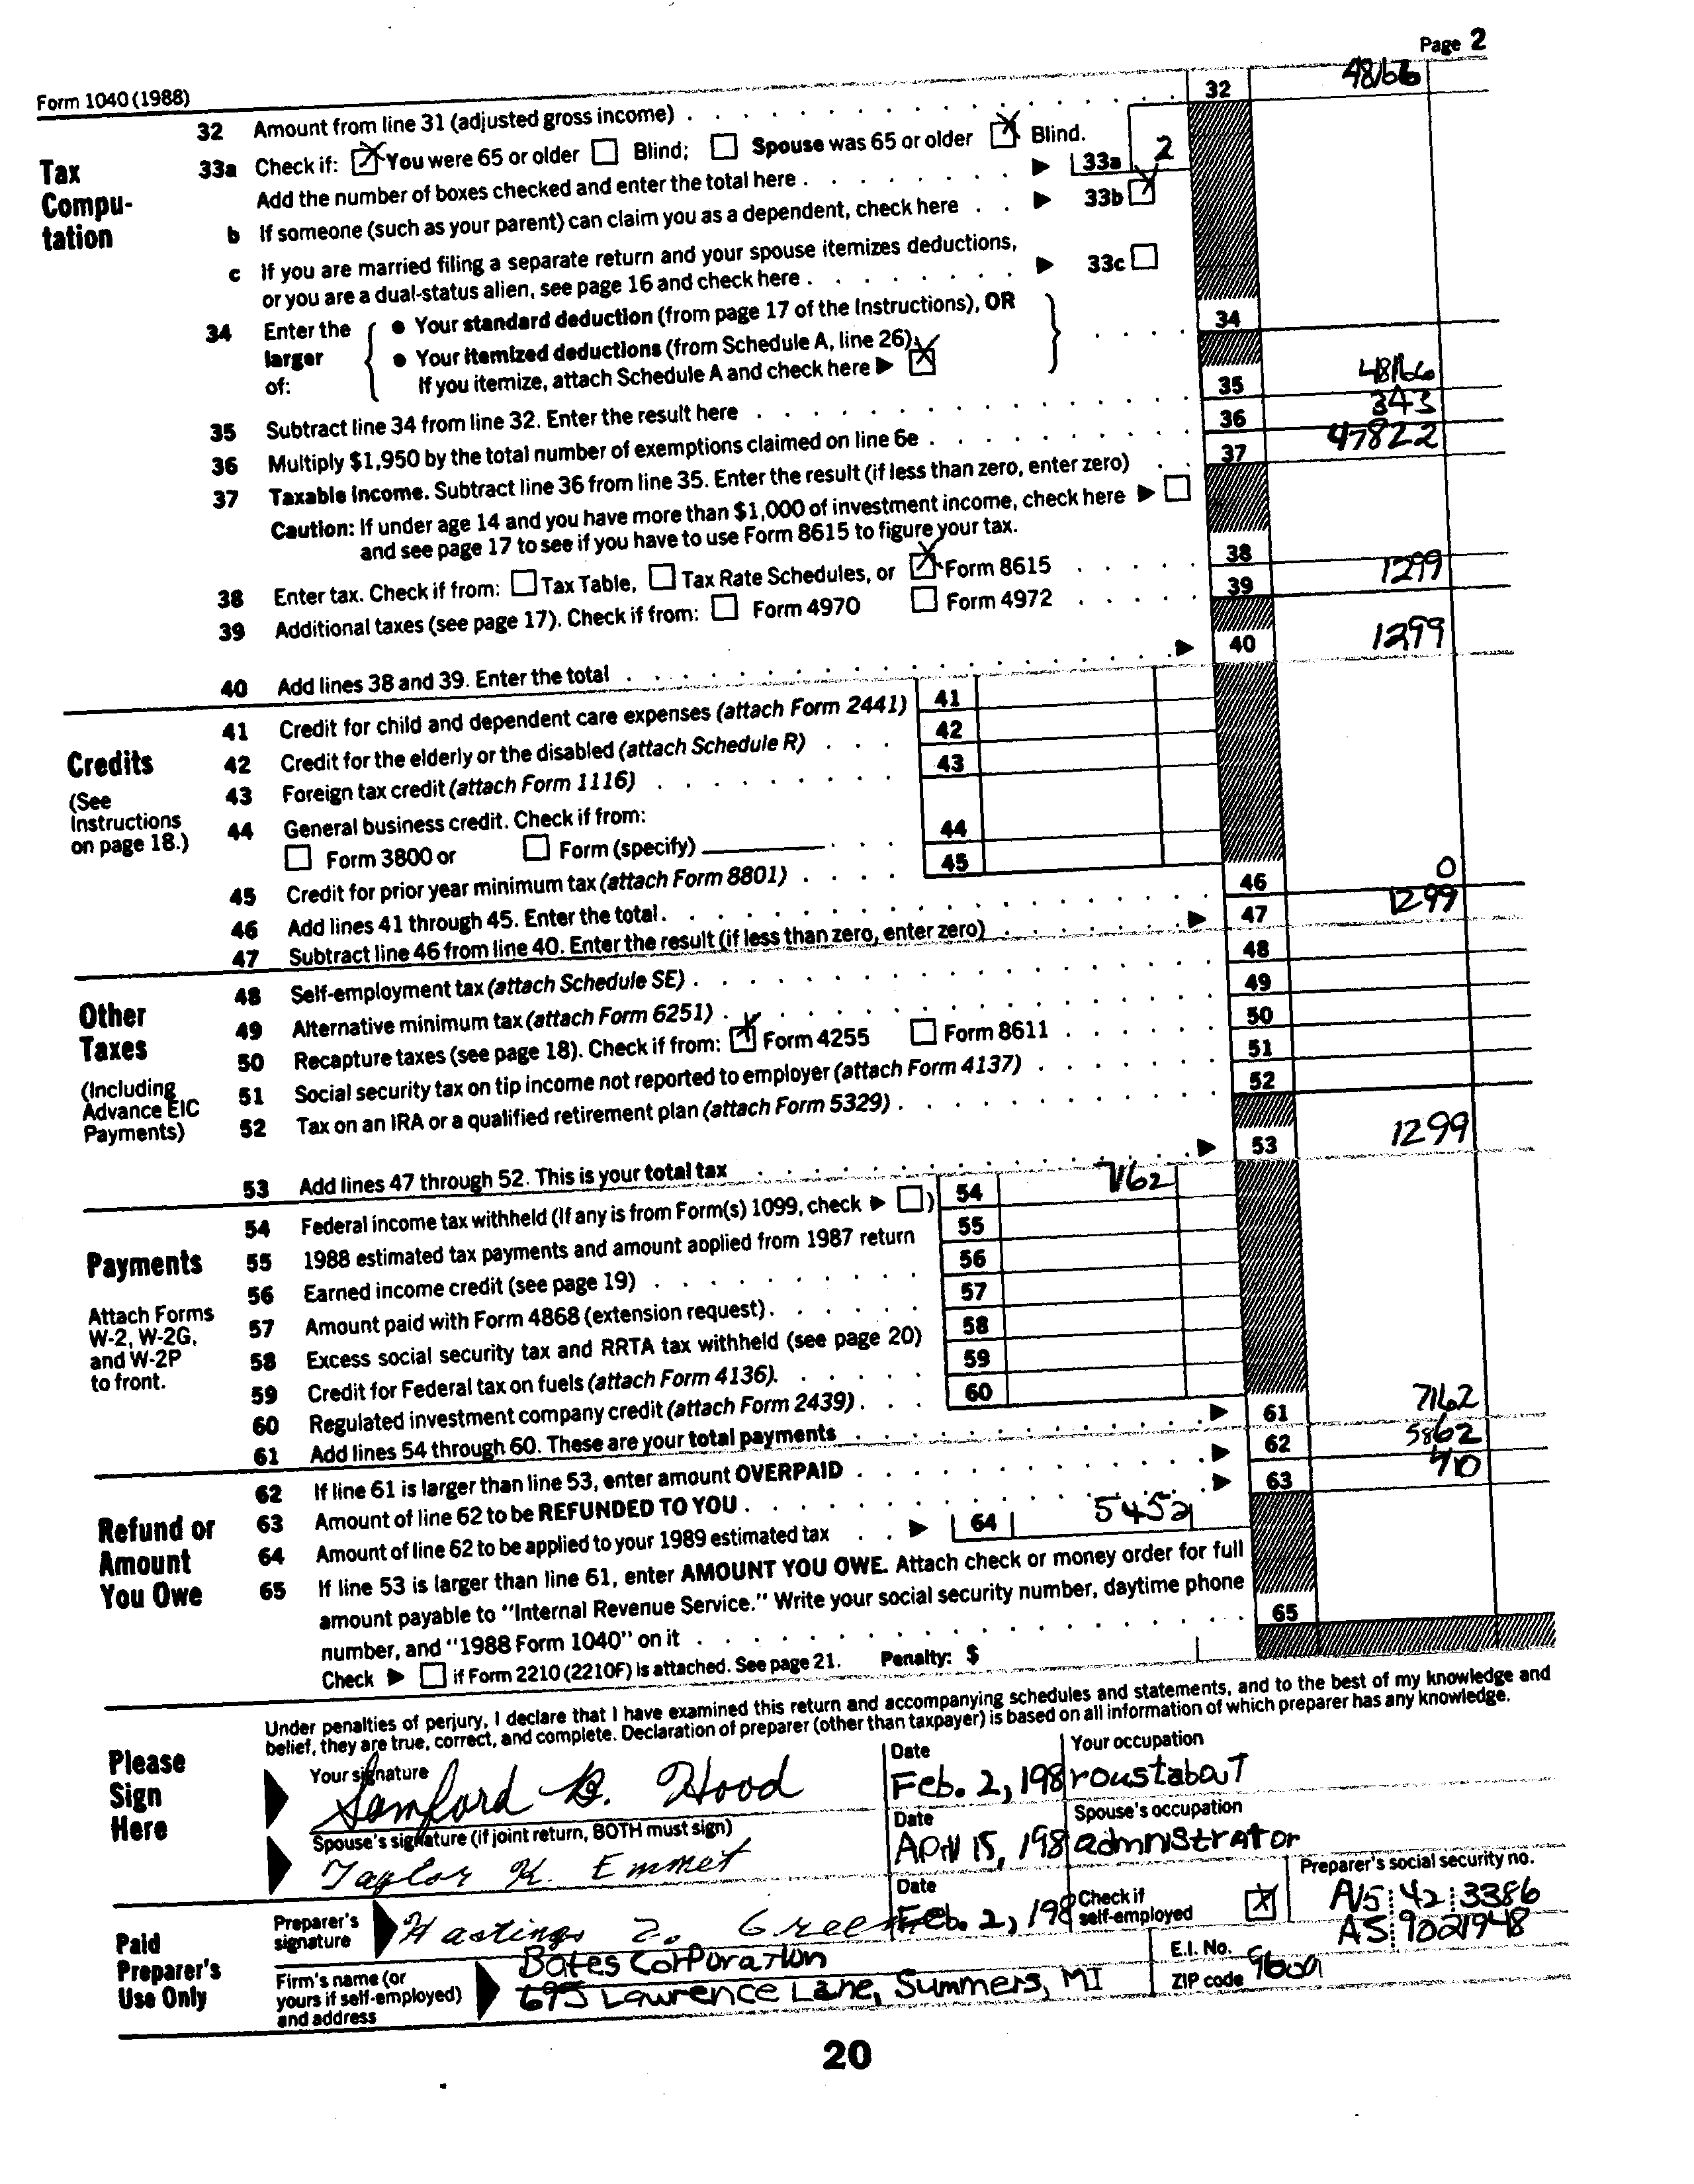 Page 2
Form 1040 (1988)
32 Amount from line 31 (adjusted gross income) 32 48166
Tax Compu- tation
33a Check if: You were 65 or older Blind; Spouse was 65 or older Blind.
Add the number of boxes checked and enter the total here 33a 2
b If someone (such as your parent) can claim you as a dependent, check here 33b
c If you are married filing a separate return and your spouse itemizes deductions,
or you are a dual-status alien, see page 16 and check here 33c
34 Enter the larger of:
● Your standard deduction (from page 17 of the Instructions), OR 34
● Your itemized deductions (from Schedule A, line 26).
If you itemize, attach Schedule A and check here
35 Subtract line 34 from line 32. Enter the result here 35 48166
36 Multiply $1,950 by the total number of exemptions claimed on line 6e 36 343
37 Taxable Income. Subtract line 36 from line 35. Enter the result (if less than zero, enter zero) 37 47822
Caution: If under age 14 and you have more than $1,000 of investment income, check here
and see page 17 to see if you have to use Form 8615 to figure your tax.
38 Enter tax. Check if from: Tax Table, Tax Rate Schedules, or Form 8615 38
39 Additional taxes (see page 17). Check if from: Form 4970 Form 4972 39 1299
40 Add lines 38 and 39. Enter the total 40 1299
Credits
(See Instructions on page 18.)
41 Credit for child and dependent care expenses (attach Form 2441) 41
42 Credit for the elderly or the disabled (attach Schedule R) 42
43 Foreign tax credit (attach Form 1116) 43
44 General business credit. Check if from:
Form 3800 or Form (specify) 44
45 Credit for prior year minimum tax (attach Form 8801) 45
46 Add lines 41 through 45. Enter the total 46 0
47 Subtract line 46 from line 40. Enter the result (if less than zero, enter zero) 47 1299
Other Taxes
(Including Advance EIC Payments)
48 Self-employment tax (attach Schedule SE) 48
49 Alternative minimum tax (attach Form 6251) 49
50 Recapture taxes (see page 18). Check if from: Form 4255 Form 8611 50
51 Social security tax on tip income not reported to employer (attach Form 4137) 51
52 Tax on an IRA or a qualified retirement plan (attach Form 5329) 52
53 Add lines 47 through 52. This is your total tax 53 1299
Payments
Attach Forms W-2, W-2G, and W-2P to front.
54 Federal income tax withheld (If any is from Form(s) 1099, check ) 54 7162
55 1988 estimated tax payments and amount applied from 1987 return 55
56 Earned income credit (see page 19) 56
57 Amount paid with Form 4868 (extension request) 57
58 Excess social security tax and RRTA tax withheld (see page 20) 58
59 Credit for Federal tax on fuels (attach Form 4136) 59
60 Regulated investment company credit (attach Form 2439) 60
61 Add lines 54 through 60. These are your total payments 61 7162
Refund or Amount You Owe
62 If line 61 is larger than line 53, enter amount OVERPAID 62 5862
63 Amount of line 62 to be REFUNDED TO YOU 63 410
64 Amount of line 62 to be applied to your 1989 estimated tax 64 5452
65 If line 53 is larger than line 61, enter AMOUNT YOU OWE. Attach check or money order for full
amount payable to "Internal Revenue Service." Write your social security number, daytime phone
number, and "1988 Form 1040" on it 65
Check if Form 2210 (2210F) is attached. See page 21. Penalty: $
Please Sign Here
Under penalties of perjury, I declare that I have examined this return and accompanying schedules and statements, and to the best of my knowledge and
belief, they are true, correct, and complete. Declaration of preparer (other than taxpayer) is based on all information of which preparer has any knowledge.
Your signature Date Your occupation
Samford B. Hood Feb. 2, 198 roustabout
Spouse's signature (if joint return, BOTH must sign) Date Spouse's occupation
Taylor K. Emmet April 15, 198 admnistrator
Paid Preparer's Use Only
Preparer's signature Date Check if self-employed Preparer's social security no.
Hastings Z. Green Feb. 2, 198 42 3386
Firm's name (or yours if self-employed) and address
Bates Corporation E.I. No. AS 9021948
695 Lawrence Lane, Summers, MI ZIP code
20